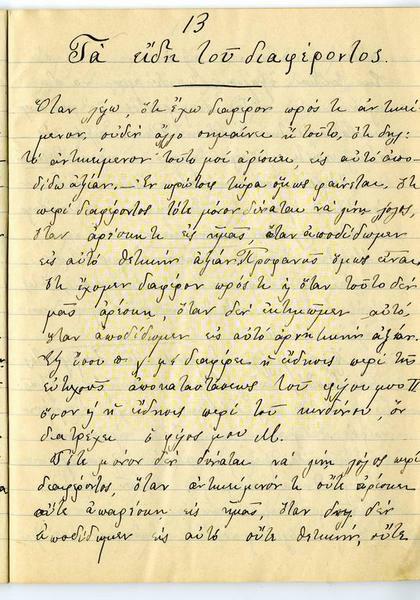 13
Τὰ εἴδη τοῦ διαφέροντος.
Ὅταν λέγω, ὅτι ἔχω διαφέρον πρός τι ἀντικεί
μενον, οὐδὲν ἄλλο σημαίνει ἢ τοῦτο, ὅτι δηλ:
τὸ ἀντικείμενον τοῦτο μοὶ ἀρέσκει, εἰς αὐτὸ ἀπο-
δίδω ἀξίαν,— Ἐν πρώτοις τώρα ὅμως φαίνεται, ὅτι
περὶ διαφέροντος τότε μόνον δύναται νὰ γίνῃ λόγος,
ὅταν ἀρέσκῃ τι εἰς ἡμᾶς, ὅταν ἀποδίδωμεν
εἰς αὐτὸ θετικὴν ἀξίαν Προφανὲς ὅμως εἶναι
ὅτι ἔχομεν διαφέρον πρός τι ἢ ὅταν τοῦτο δὲν
μᾶς ἀρέσῃ, ὅταν δὲν ἐκτιμῶμεν αὐτό,
ὅταν ἀποδίδωμεν εἰς αὐτὸ ἀρνητικὴν ἀξίαν.
Ἐξ ἴσου π.χ. μὲ διαφέρει ἡ εἴδησις περὶ τῆς
εὐτυχοῦς ἀποκαταστάσεως τοῦ φίλου μου Π
ὅσον κ' ἡ εἴδησις περὶ τοῦ κινδύνου, ὃν
διατρέχει ὁ φίλος μου Μ.
Τότε μόνον δὲν δύναται νὰ γίνῃ λόγος περὶ
διαφέροντος, ὅταν ἀντικείμενόν τι οὔτε ἀρέσκει
οὔτε ἀπαρέσκει εἰς ἡμᾶς, ὅταν δηλ. δὲν
ἀποδίδωμεν εἰς αὐτὸ οὔτε θετικήν, οὔτε